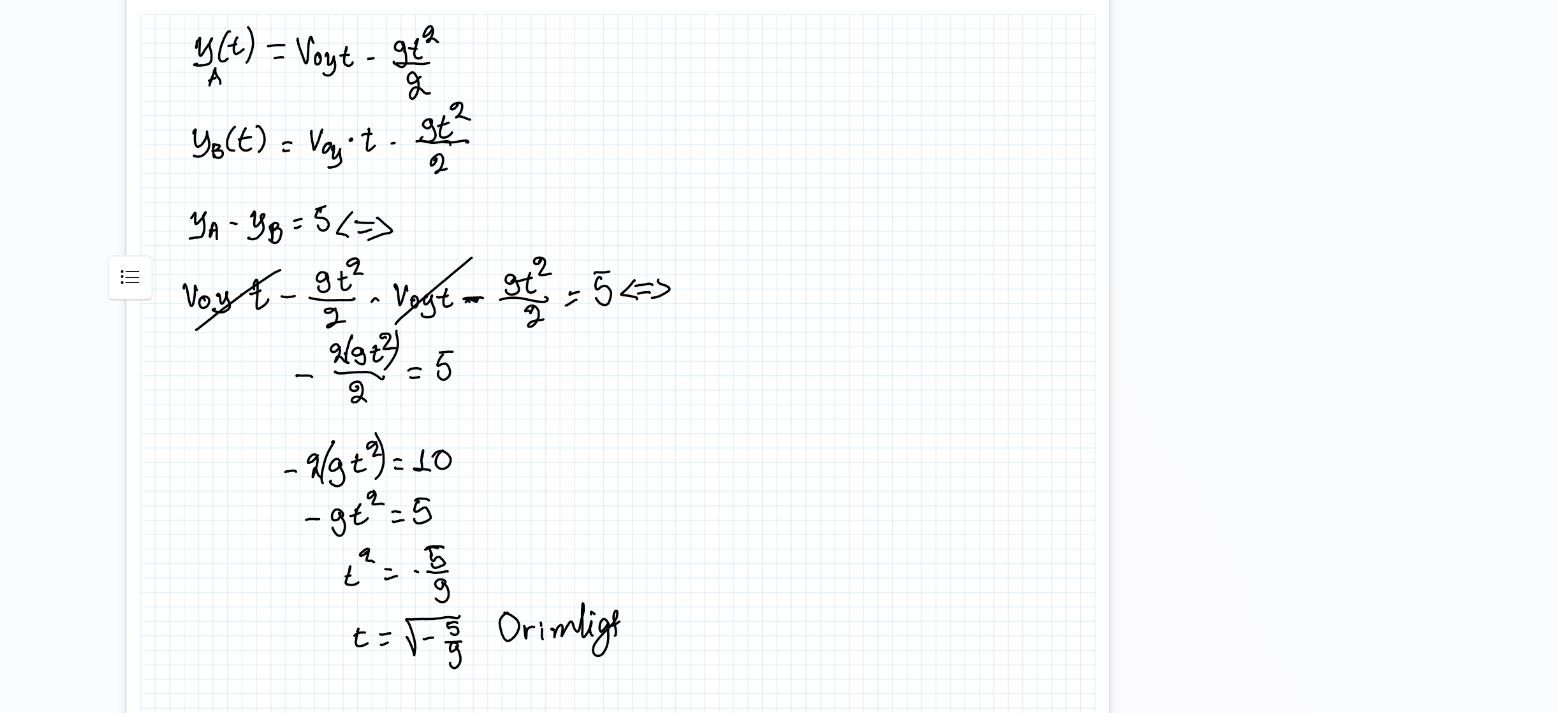 y_A(t) = V₀yt - gt²/2
y_B(t) = V₀y · t - gt²/2
y_A - y_B = 5 <=>
V₀yt - gt²/2 - V₀yt - gt²/2 = 5 <=>
- 2(gt²)/2 = 5
- 2(gt²) = 10
- gt² = 5
t² = - 5/g
t = √(- 5/g) Orimligt